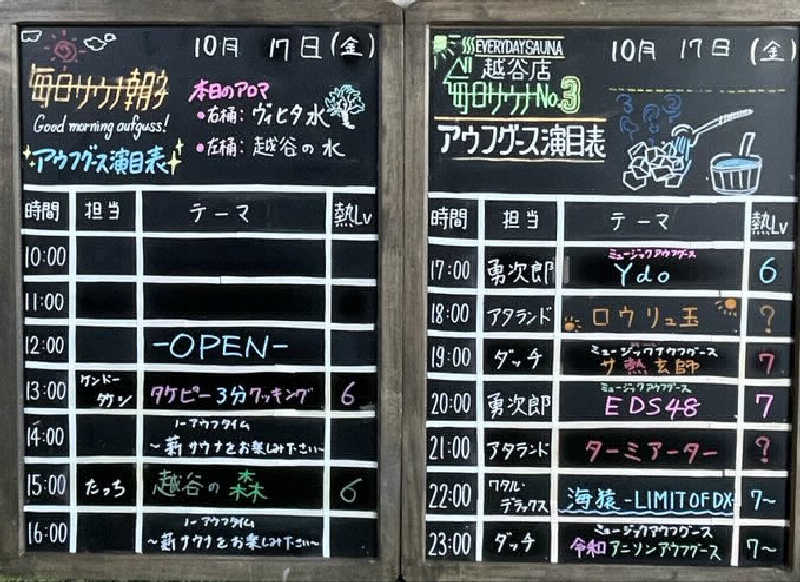 10月 17日(金)
毎日サウナ朝ウナ
Good morning aufguss!
アウフグース演目表
本日のアロマ
・右桶: ヴィヒタ水
・左桶: 越谷の水
時間 担当 テーマ 熱Lv
10:00
11:00
12:00 -OPEN-
13:00 ケンドータケシ タケピー3分クッキング 6
14:00 ノーアウフタイム
〜薪サウナをお楽しみ下さい〜
15:00 たっち 越谷の森 6
16:00 ノーアウフタイム
〜薪サウナをお楽しみ下さい〜
10月 17日(金)
EVERYDAYSAUNA
越谷店
毎日サウナNo.3
アウフグース演目表
時間 担当 テーマ 熱Lv
ミュージックアウフグース
17:00 勇次郎 Ydo 6
18:00 アタランド ロウリュ玉 ?
ミュージックアウフグース
19:00 ダッチ サ熱玄師 7
ミュージックアウフグース
20:00 勇次郎 EDS48 7
21:00 アタランド ターミアーター ?
22:00 ワタル・デラックス 海猿-LIMITOFDX- 7~
ミュージックアウフグース
23:00 ダッチ 令和アニソンアウフグース 7~